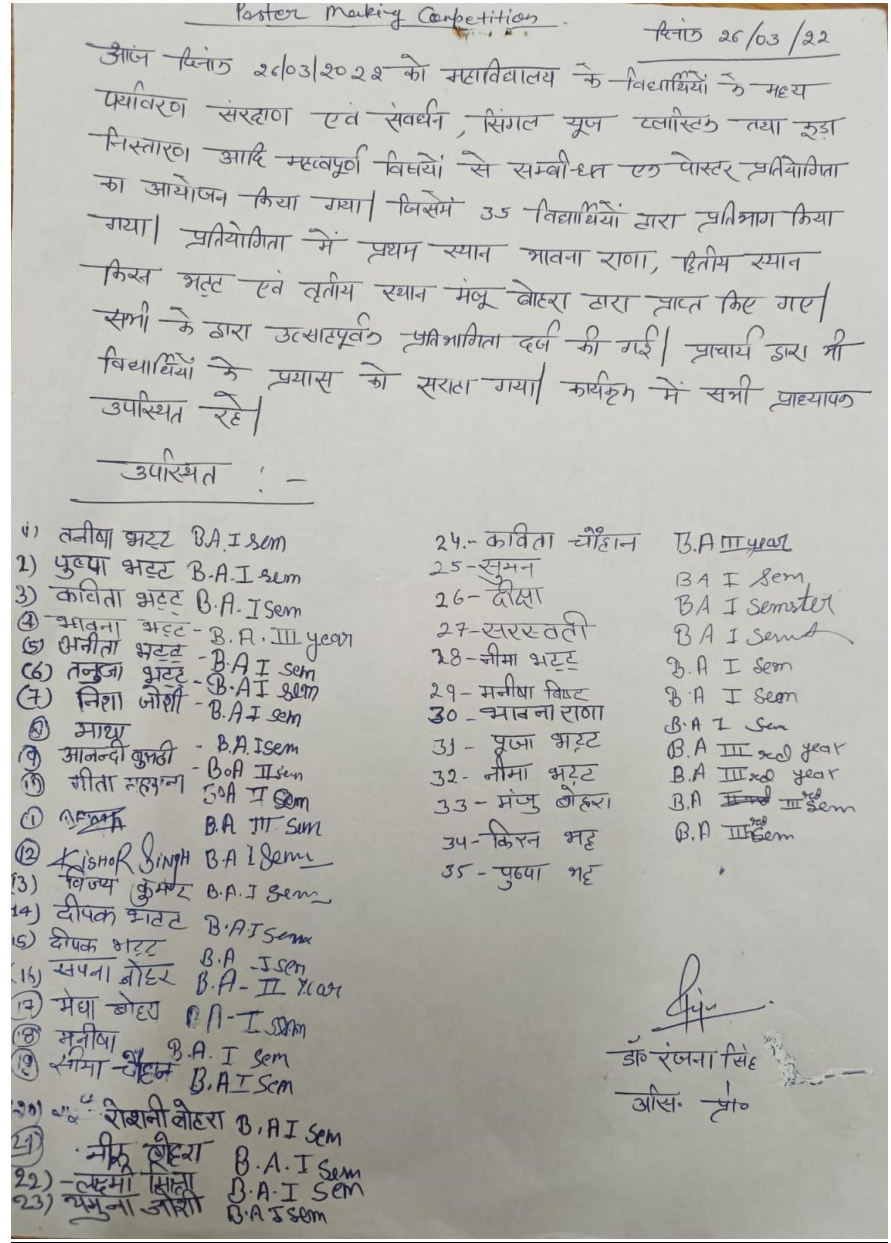 Poster Making Competition
दिनांक 26/03/22
आज दिनांक 26/03/2022 को महाविद्यालय के विद्यार्थियों के मध्य
पर्यावरण संरक्षण एवं संवर्धन, सिंगल यूज प्लास्टिक तथा कूड़ा
निस्तारण आदि महत्वपूर्ण विषयों से सम्बन्धित एक पोस्टर प्रतियोगिता
का आयोजन किया गया| जिसमें 35 विद्यार्थियों द्वारा प्रतिभाग किया
गया| प्रतियोगिता में प्रथम स्थान भावना राणा, द्वितीय स्थान
किरन भट्ट एवं तृतीय स्थान मंजू बोहरा द्वारा प्राप्त किए गए|
सभी के द्वारा उत्साहपूर्वक प्रतिभागिता दर्ज की गई| प्राचार्य द्वारा भी
विद्यार्थियों के प्रयास को सराहा गया| कार्यक्रम में सभी प्राध्यापक
उपस्थित रहे|
उपस्थित :-
1) तनीषा भट्ट B.A. I sem
2) पुष्पा भट्ट B.A. I sem
3) कविता भट्ट B.A. I Sem
4) भावना भट्ट - B.A. III year
(5) अनीता भट्ट - B.A I sem
(6) तनुजा भट्ट - B.A I sem
(7) निशा जोशी - B.A I sem
8) माया - B.A. I Sem
(9) आनन्दी - B.A II sem
(10) गीता B.A II Sem
(11) B.A III Sem
(12) KISHOR SINGH B A I Sem
13) विजय कुमार B.A. I Sem
14) दीपक भटट B.A I Sem
15) दीपक भट्ट B.A - I sem
(16) सपना बोहरा B.A - II Year
(17) मेघा बोहरा B A - I sem
(18) मनीषा B.A. I Sem
(19) सीमा चौहान B.A I Sem
(20) रोशनी बोहरा B.A I Sem
21) बोहरा B.A. I Sem
22) - लक्ष्मी B.A. I Sem
23) यमुना जोशी B.A I Sem
24.- कविता चौहान B.A III year
25 - सुमन B A I Sem
26 - दीक्षा B A I Semster
27 - सरस्वती B A I Sem
28 - नीमा भट्ट B.A I Sem
29 - मनीषा बिष्ट B.A I Sem
30 - भावना राणा B.A I Sem
31 - पूजा भट्ट B.A III rd year
32 - नीमा भट्ट B.A III rd year
33 - मंजु बोहरा B.A III rd Sem
34 - किरन भट्ट B.A III rd Sem
35 - पुष्पा भट्ट
डॉ० रंजना सिंह
असि. प्रो०